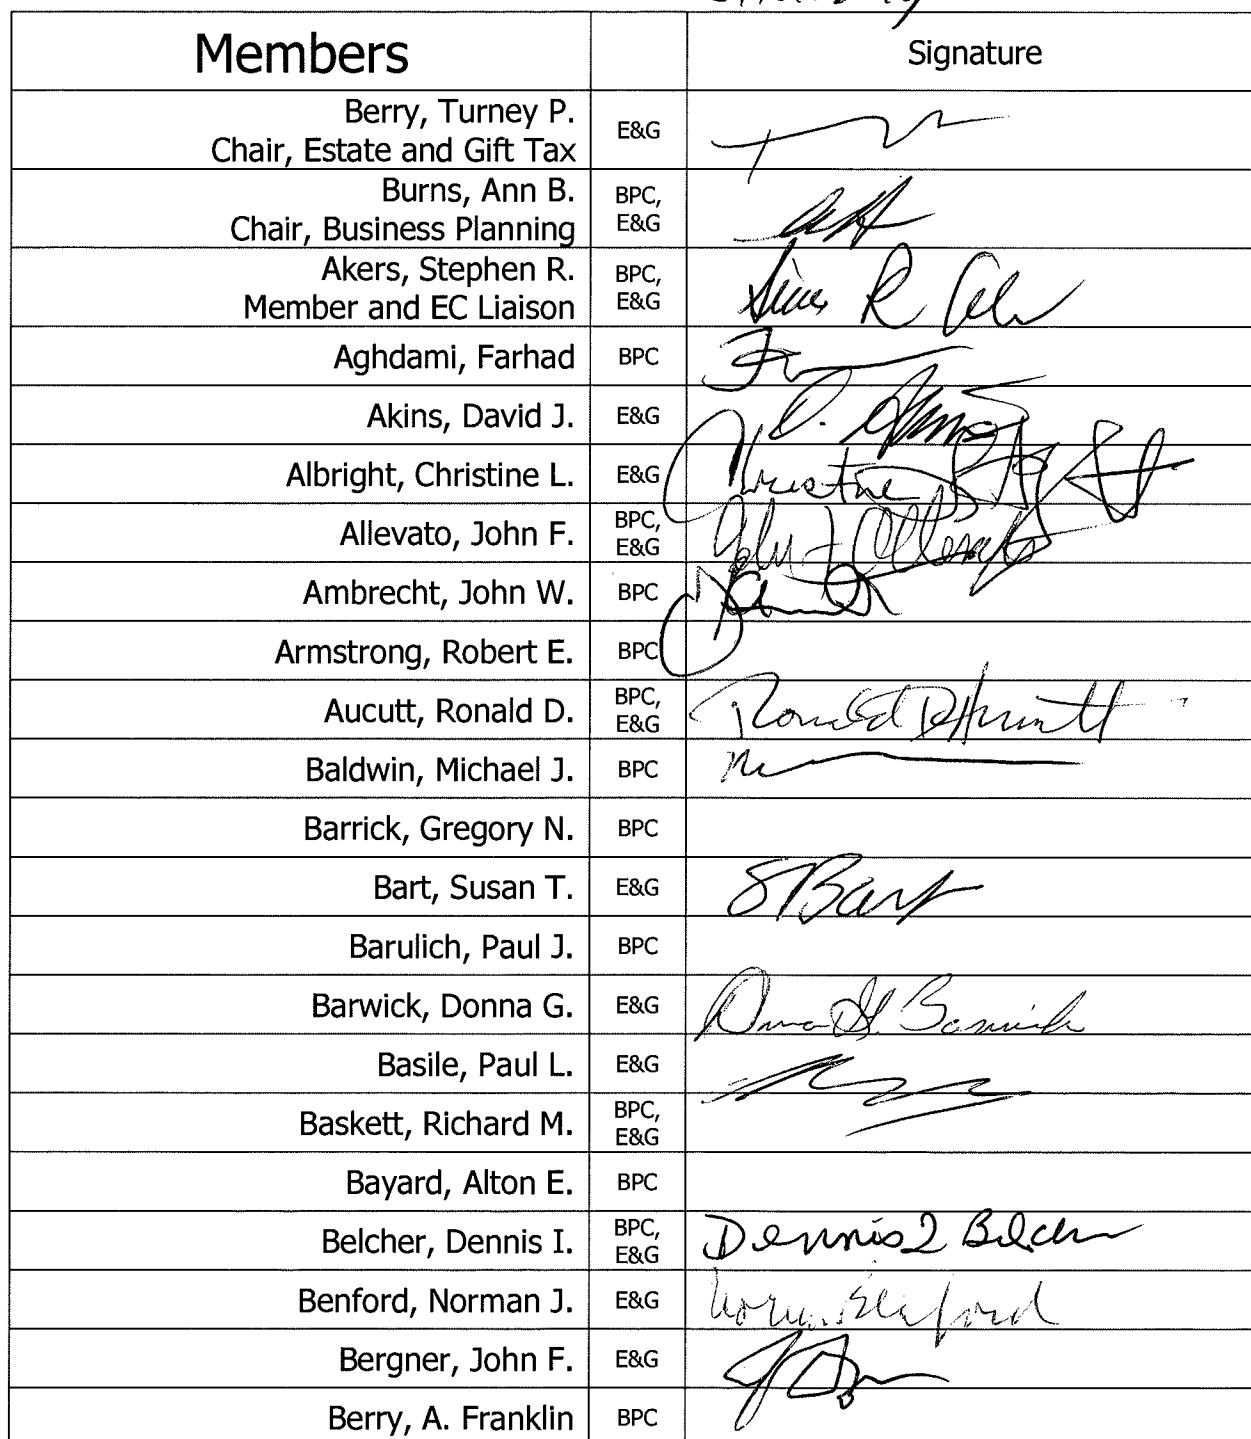 Members Signature
Berry, Turney P.
Chair, Estate and Gift Tax
E&G
Burns, Ann B.
Chair, Business Planning
BPC,
E&G
Akers, Stephen R.
Member and EC Liaison
BPC,
E&G
Aghdami, Farhad BPC
Akins, David J. E&G
Albright, Christine L. E&G Christine
Allevato, John F.
BPC,
E&G
John F Allevato
Ambrecht, John W. BPC
Armstrong, Robert E. BPC
Aucutt, Ronald D.
BPC,
E&G
Ronald D Aucutt
Baldwin, Michael J. BPC
Barrick, Gregory N. BPC
Bart, Susan T. E&G STBart
Barulich, Paul J. BPC
Barwick, Donna G. E&G Donna G. Barwick
Basile, Paul L. E&G
Baskett, Richard M.
BPC,
E&G
Bayard, Alton E. BPC
Belcher, Dennis I.
BPC,
E&G
Dennis I Belcher
Benford, Norman J. E&G Norman Benford
Bergner, John F. E&G
Berry, A. Franklin BPC